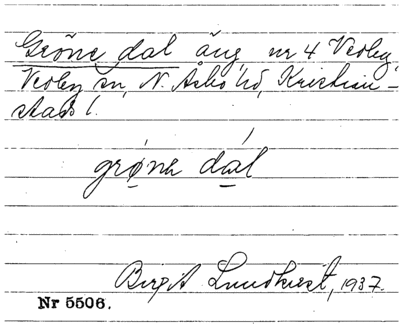 Gröne dal äng nr 4 Verby
Verby sn, N. Åsbo hd, Kristian-
stads l.
grøne dal
Birgit Lundkvist, 1937.
Nr 5506.